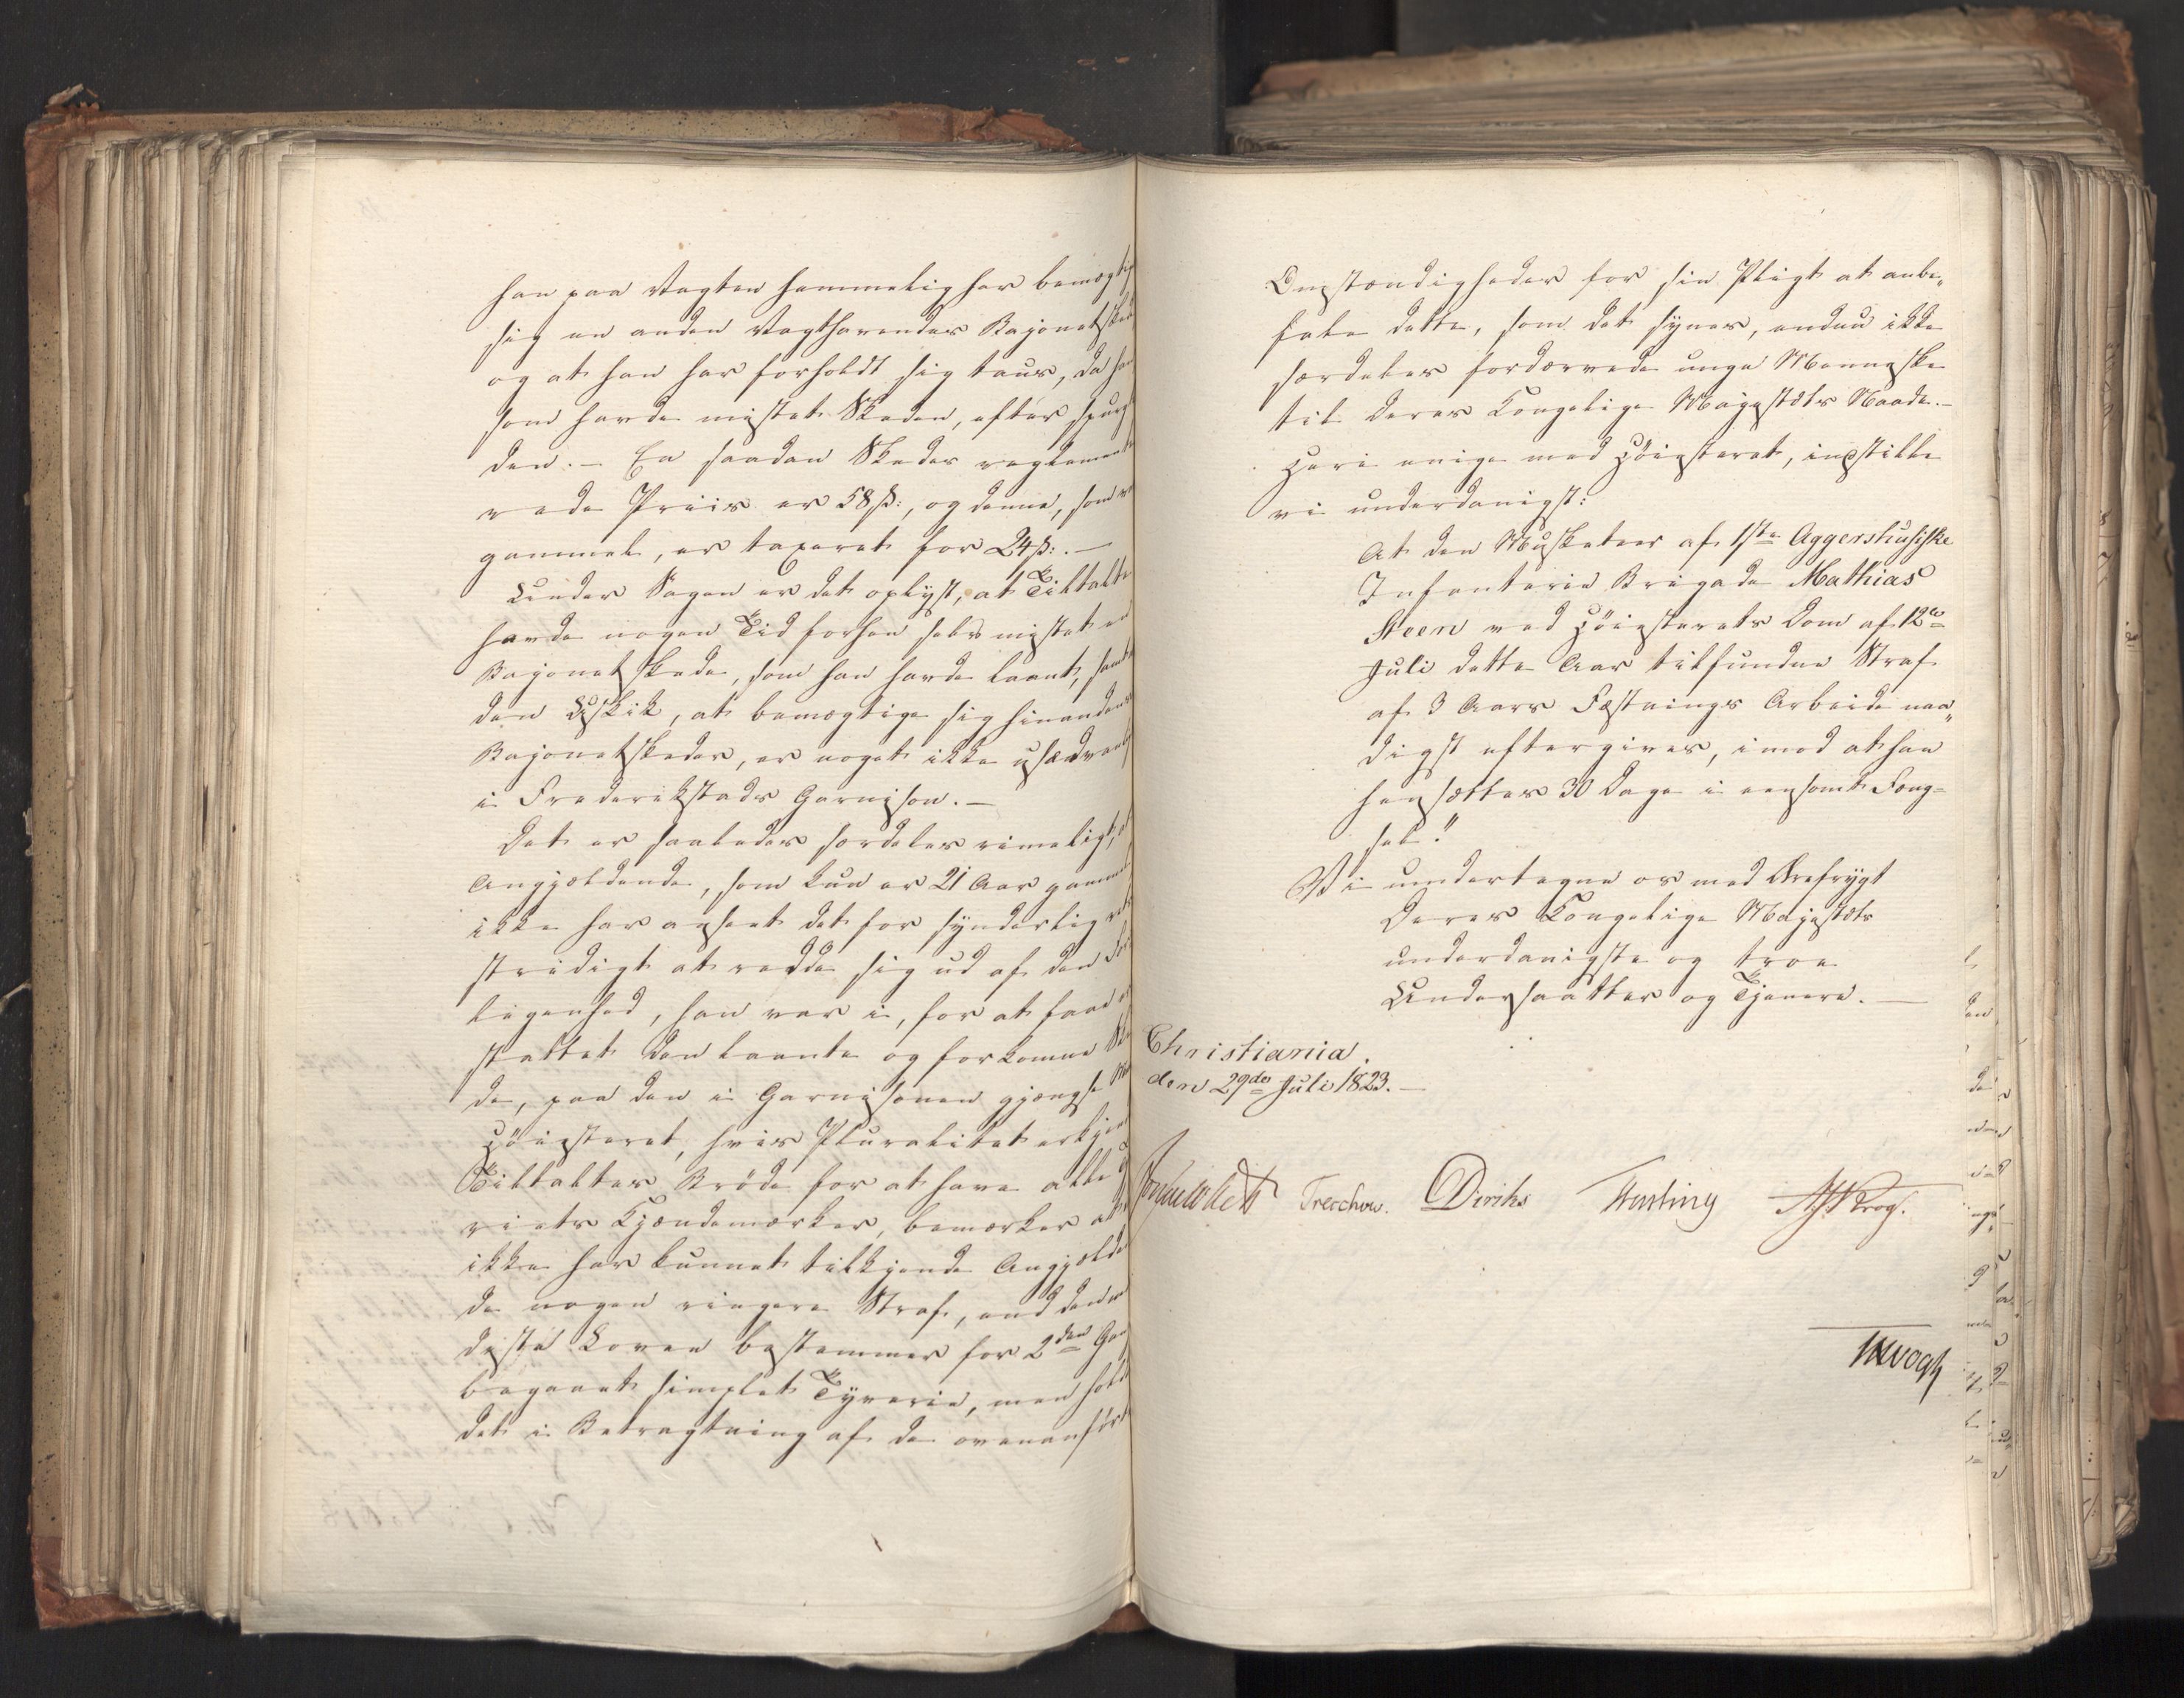 han paa Vagten hemmelig har bemægtig
sig en anden Vagthavendes Bajonetsked
og at han har forholdt sig taus, da han
som havde mistet Skeden, efterspurgt
den. — En saadan Skedes reglemente
rede Priis er 58 ß:, og denne, som var
gammel, er taxeret for 24 ß:. —
Under Sagen er det oplyst, at Tiltalte
havde nogen Tid forhen selv mistet en
Bajonetskede, som han havde laant, samt
den Uskik, at bemægtige sig hinandens
Bajonetskeder, er noget ikke usædvanl
i Frederikstads Garnison. —
Det er saaledes særdeles rimeligt, at
Angjældende, som kun er 21 Aar gammel
ikke har anseet det for synderlig ret
stridigt at redde sig ud af den For
legenhed, han var i, for at faae er
stattet den laante og forkomne Ske
de, paa den i Garnisonen gjængse Maa
Høiesteret, hvis Pluralitet erkjen
Tiltaltes Brøde for at have alle Ty
veriets Kjendemærker, bemærker at
ikke har kunnet tilkjende Angjælden
de nogen ringere Straf, end den mi
deste Loven bestemmer for 2den Gang
begaaet simpelt Tyverie, men hold
det i Betragtning af de ovenanfør
Omstændigheder for sin Pligt at anbe„
fale dette, som det synes, endnu ikke
særdeles fordærvede unge Menneske
til Deres Kongelige Majestæts Naade. —
Heri enige med Høiesteret, indstille
vi underdanigst:
At den Musketeer af 1ste Aggershusiske
Infanterie Brigade Mathias
Steen ved Høiesterets Dom af 12te
Juli dette Aar tilfundne Straf
af 3 Aars Fæstnings Arbeide naa„
digst eftergives, imod at han
hensættes 30 Dage i eensomt Fæng=
sel."
Vi undertegne os med Ærefrygt
Deres Kongelige Majestæts
underdanigste og troe
Undersaatter og Tjenere. —
Christiania.
den 29de Juli 1823. —
Sommerfeldt Treschow. Diriks Fasting Krog.
Vogt